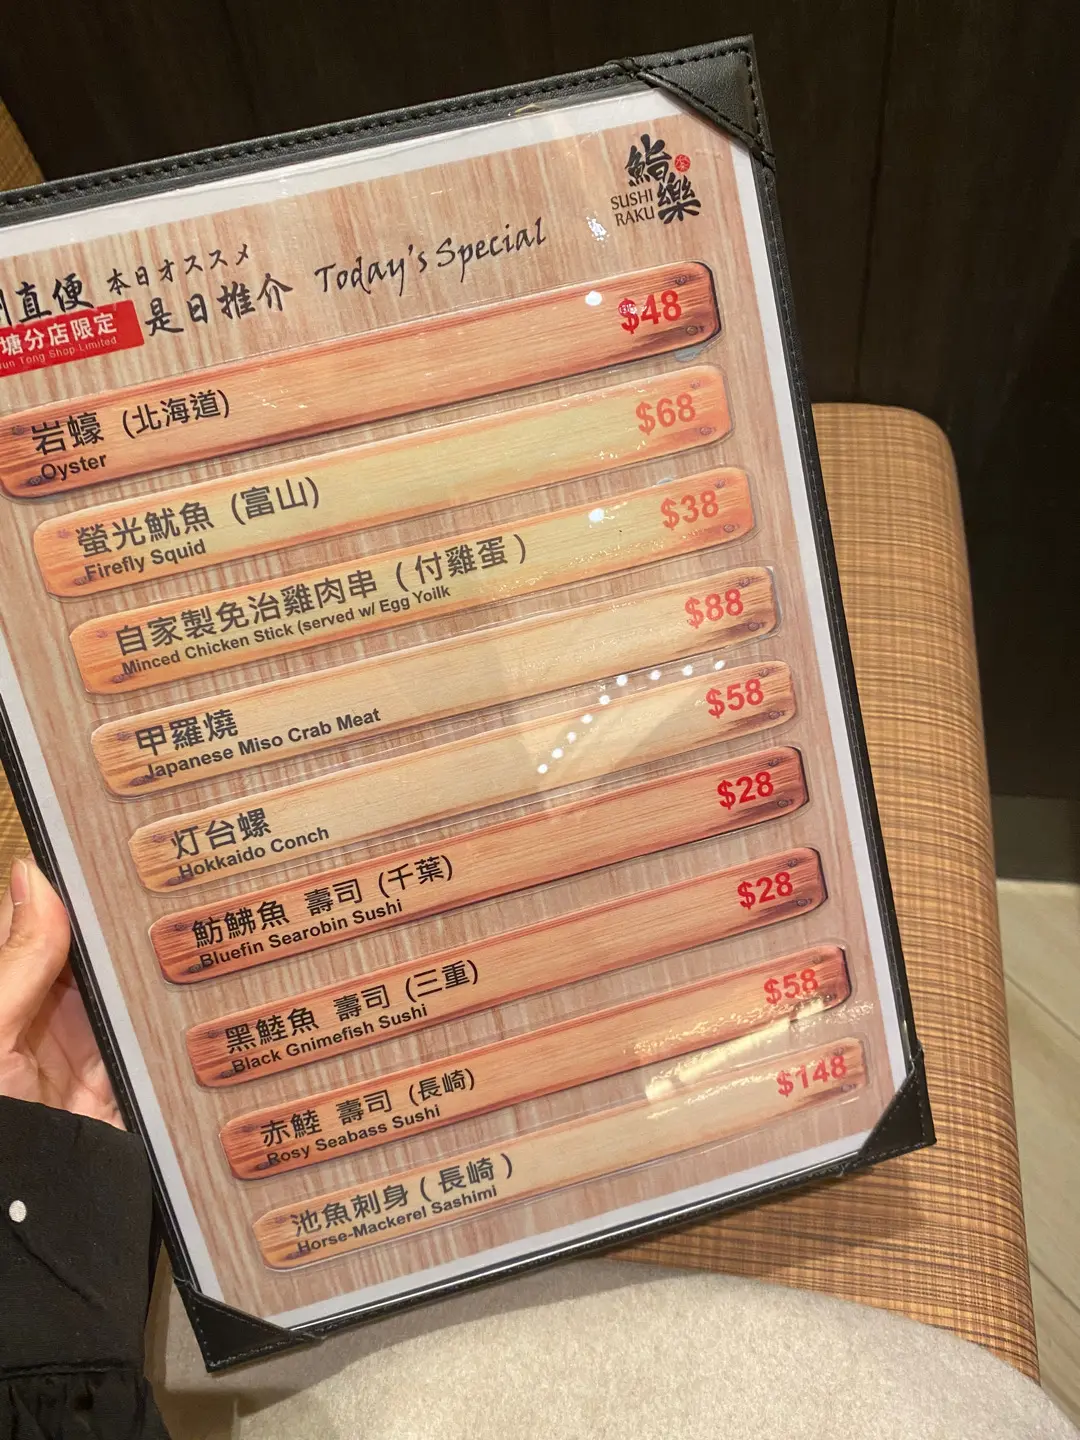 鮨樂
SUSHI
RAKU
直便
本日オススメ
是日推介
Today's Special
塘分店限定
Tong Shop Limited
岩蠔 (北海道)
Oyster
$48
螢光魷魚 (富山)
Firefly Squid
$68
自家製免治雞肉串 ( 付雞蛋 )
Minced Chicken Stick (served w/ Egg Yoilk
$38
甲羅燒
Japanese Miso Crab Meat
$88
灯台螺
Hokkaido Conch
$58
魴鮄魚 壽司 (千葉)
Bluefin Searobin Sushi
$28
黑鯥魚 壽司 (三重)
Black Gnimefish Sushi
$28
赤鯥 壽司 (長崎)
Rosy Seabass Sushi
$58
池魚刺身 ( 長崎 )
Horse-Mackerel Sashimi
$148